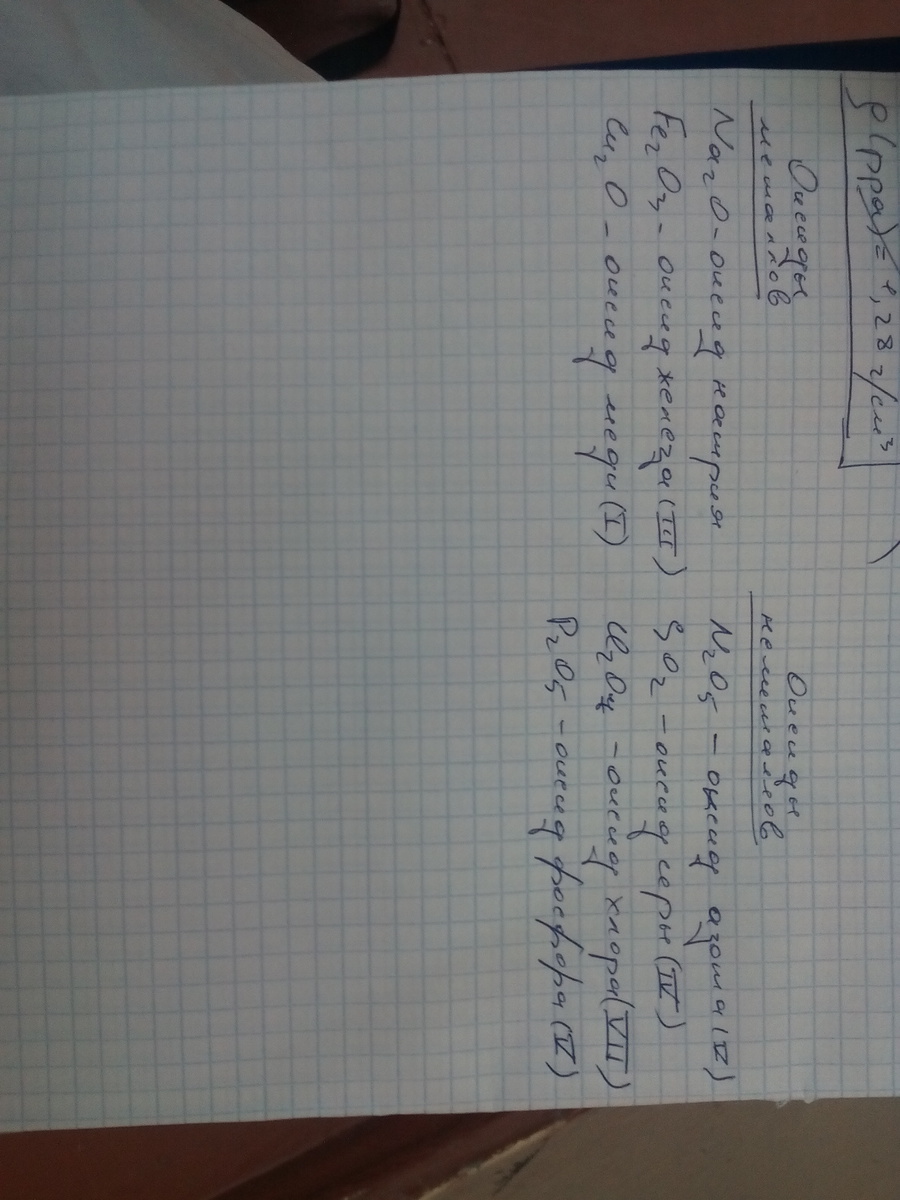 ρ(рра) = 1,28 г/см³
Оксиды
металлов
Na₂O - оксид натрия
Fe₂O₃ - оксид железа (III)
Cu₂O - оксид меди (I)
Оксиды
неметаллов
N₂O₅ - оксид азота (V)
SO₂ - оксид серы (IV)
Cl₂O₇ - оксид хлора (VII)
P₂O₅ - оксид фосфора (V)